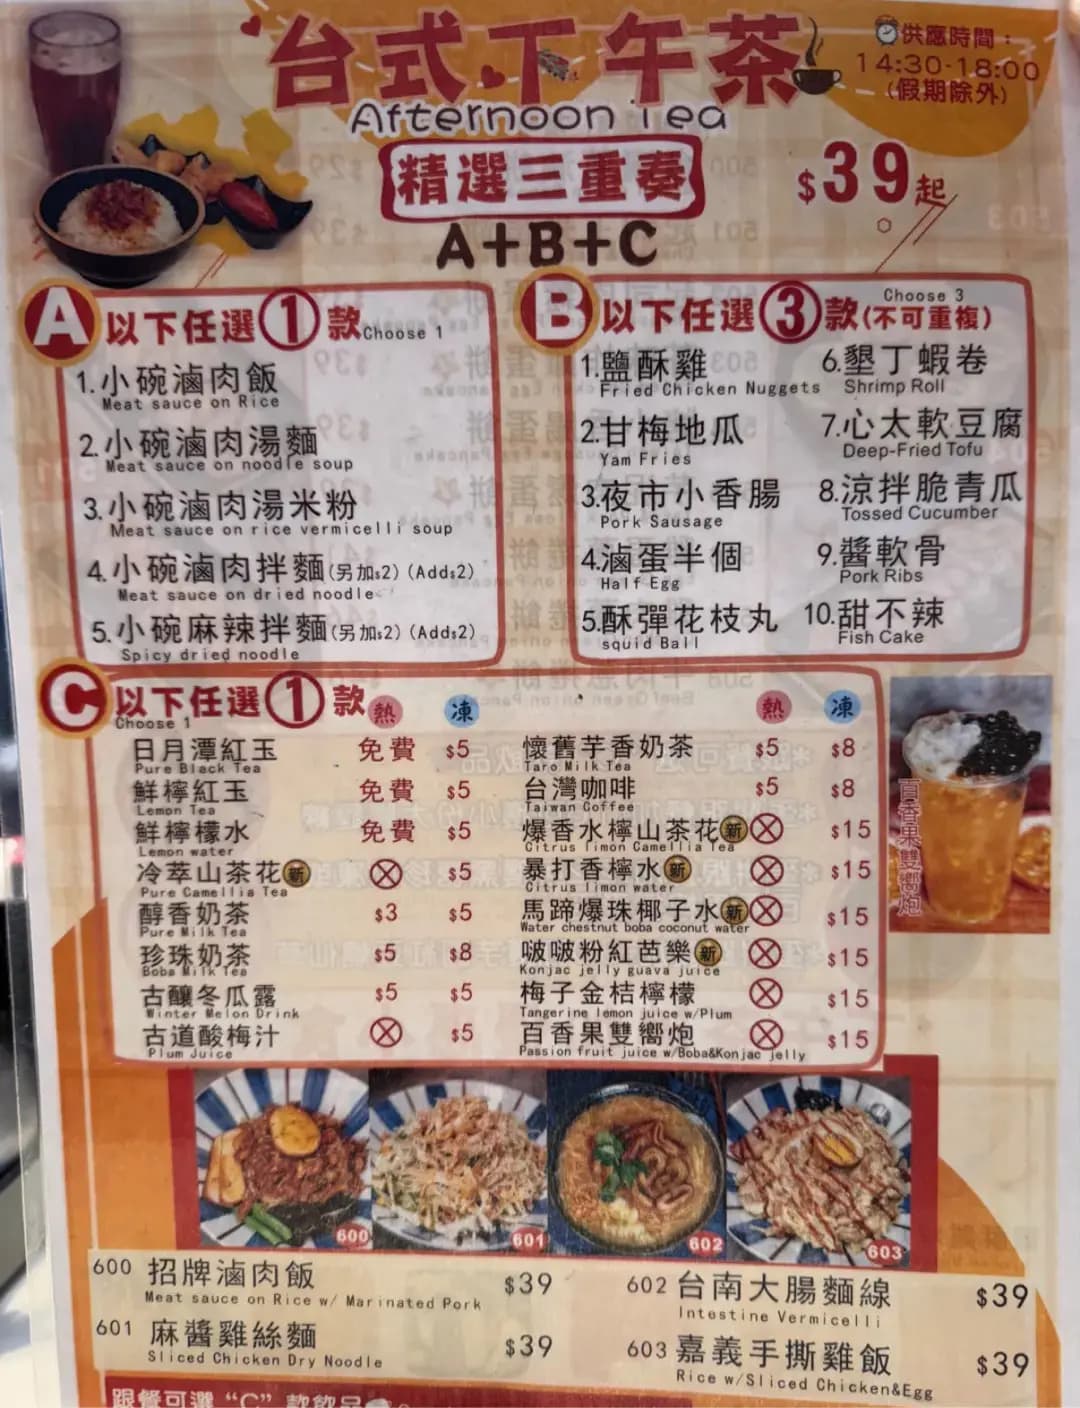 台式下午茶
Afternoon Tea
供應時間：
14:30-18:00
(假期除外)
精選三重奏
$39起
A+B+C
A 以下任選①款 Choose 1
1.小碗滷肉飯
Meat sauce on Rice
2.小碗滷肉湯麵
Meat sauce on noodle soup
3.小碗滷肉湯米粉
Meat sauce on rice vermicelli soup
4.小碗滷肉拌麵(另加$2) (Add$2)
Meat sauce on dried noodle
5.小碗麻辣拌麵(另加$2) (Add$2)
Spicy dried noodle
B 以下任選③款(不可重複) Choose 3
1.鹽酥雞
Fried Chicken Nuggets
2.甘梅地瓜
Yam Fries
3.夜市小香腸
Pork Sausage
4.滷蛋半個
Half Egg
5.酥彈花枝丸
squid Ball
6.墾丁蝦卷
Shrimp Roll
7.心太軟豆腐
Deep-Fried Tofu
8.涼拌脆青瓜
Tossed Cucumber
9.醬軟骨
Pork Ribs
10.甜不辣
Fish Cake
C 以下任選①款 熱 凍
Choose 1
日月潭紅玉 免費 $5
Pure Black Tea
鮮檸紅玉 免費 $5
Lemon Tea
鮮檸檬水 免費 $5
Lemon water
冷萃山茶花新 $5
Pure Camellia Tea
醇香奶茶 $3 $5
Pure Milk Tea
珍珠奶茶 $5 $8
Boba Milk Tea
古釀冬瓜露 $5 $5
Winter Melon Drink
古道酸梅汁 $5
Plum Juice
熱 凍
懷舊芋香奶茶 $5 $8
Taro Milk Tea
台灣咖啡 $5 $8
Taiwan Coffee
爆香水檸山茶花新 $15
Citrus limon Camellia Tea
暴打香檸水新 $15
Citrus limon water
馬蹄爆珠椰子水新 $15
Water chestnut boba coconut water
啵啵粉紅芭樂新 $15
Konjac jelly guava juice
梅子金桔檸檬 $15
Tangerine lemon juice w/Plum
百香果雙響炮 $15
Passion fruit juice w/Boba&Konjac jelly
百香果雙響炮
600
601
602
603
600 招牌滷肉飯 $39
Meat sauce on Rice w/ Marinated Pork
601 麻醬雞絲麵 $39
Sliced Chicken Dry Noodle
602 台南大腸麵線 $39
Intestine Vermicelli
603 嘉義手撕雞飯 $39
Rice w/Sliced Chicken&Egg
跟餐可選“C”款飲品